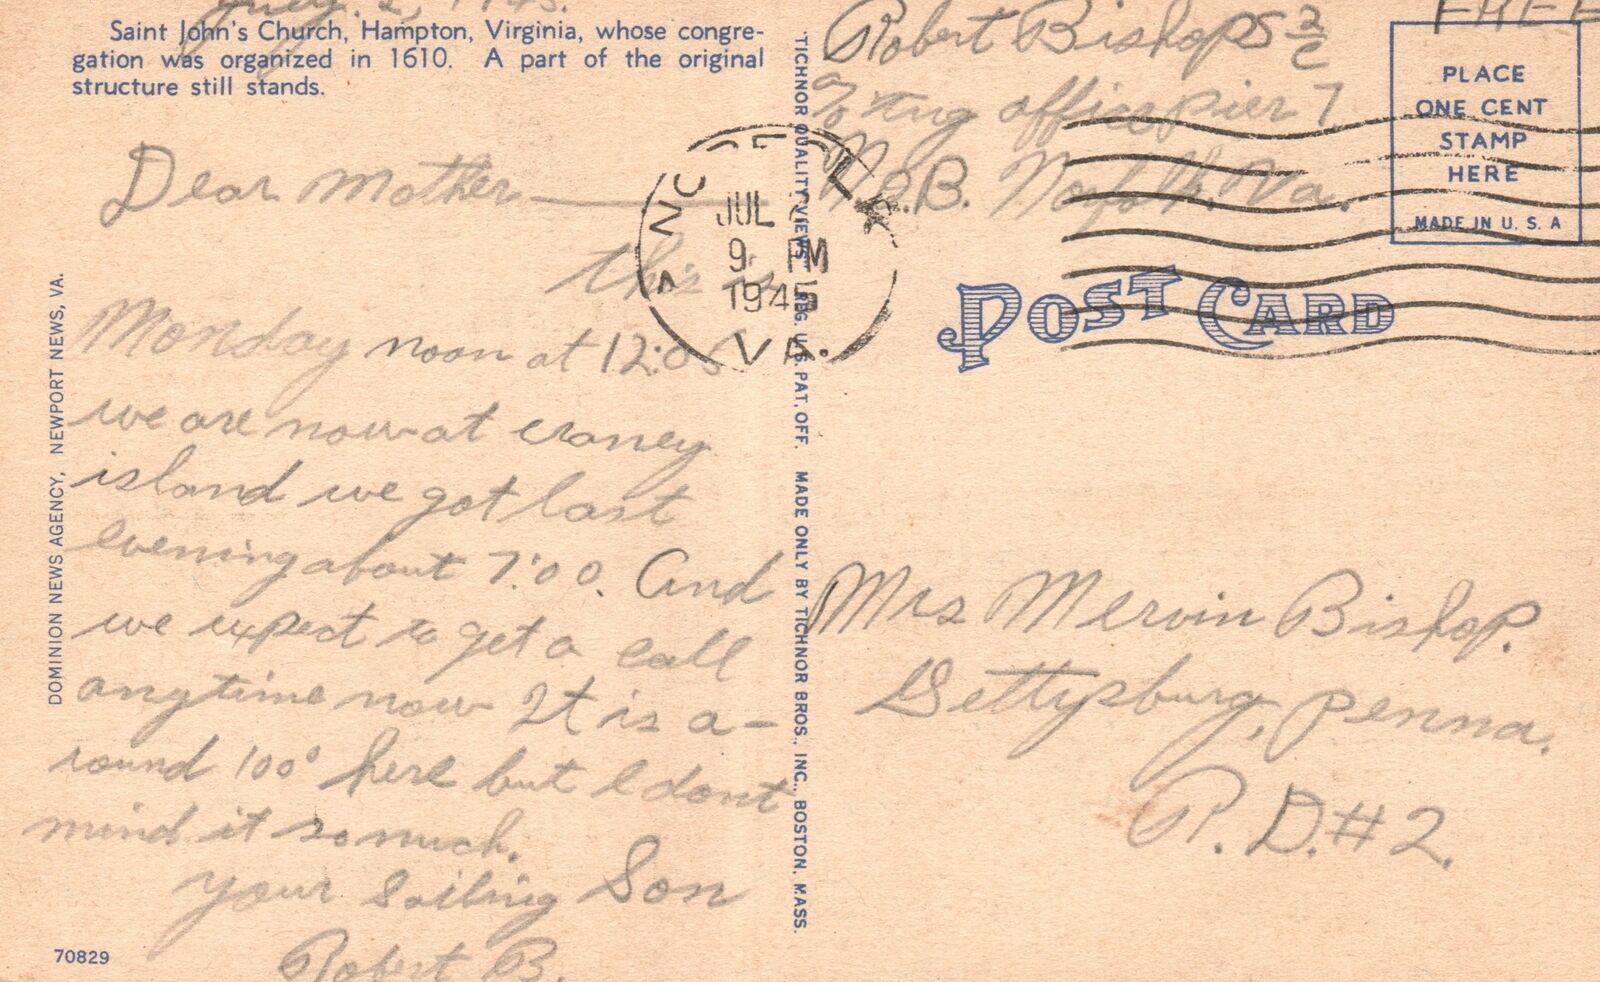 July. 2, 1945.
Saint John's Church, Hampton, Virginia, whose congre-
gation was organized in 1610. A part of the original
structure still stands.
Dear Mother
this is
Monday noon at 12:05
we are now at craney
island we got last
evening about 7:00. And
we expect to get a call
anytime now It is a-
round 100° here but I dont
mind it so much.
your sailing Son
Robert B.
70829
DOMINION NEWS AGENCY, NEWPORT NEWS, VA.
"TICHNOR QUALITY VIEWS" REG. U. S. PAT. OFF. MADE ONLY BY TICHNOR BROS., INC., BOSTON, MASS.
Robert Bishop S 2/c
c/o tug office pier 7
N.O.B. Norfolk. Va.
FREE
PLACE
ONE CENT
STAMP
HERE
MADE IN U. S. A
NORFOLK
JUL 2
9 PM
1945
VA.
POST CARD
Mrs Mervin Bishop.
Gettysburg, Penna.
R. D. #2.